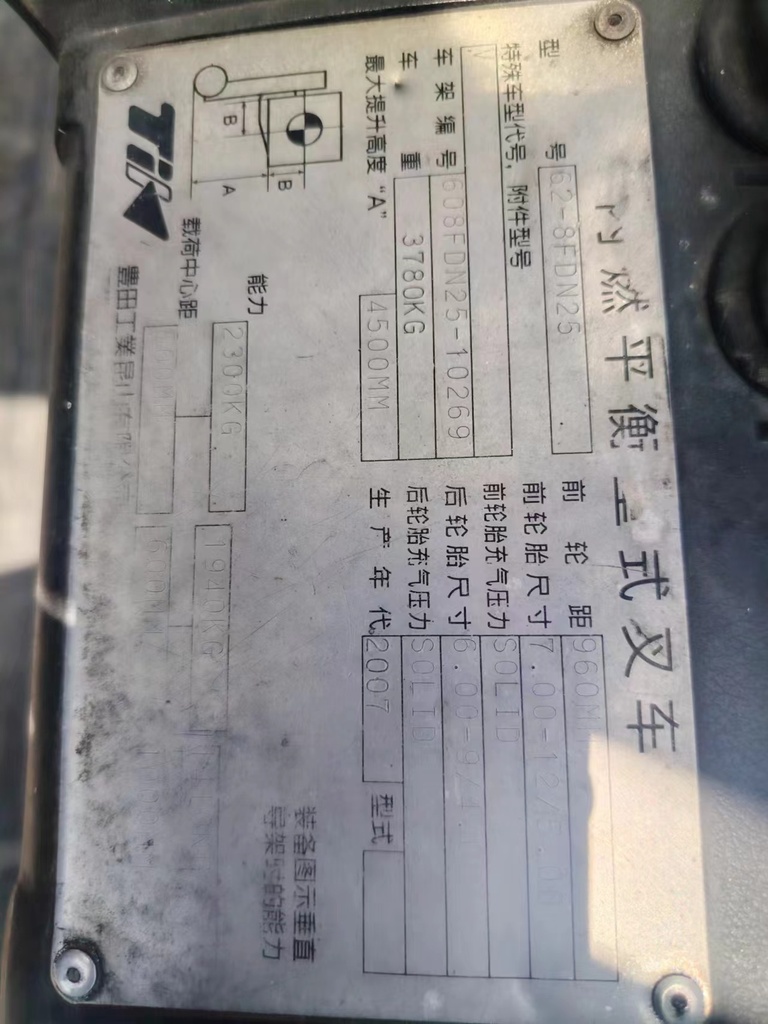 内燃平衡重式叉车
型号 62-8FDN25
特殊车型代号，附件型号
V
车架编号 608FDN25-10269
车重 3780KG
最大提升高度“A” 4500MM
前轮距 960MM
前轮胎尺寸 7.00-12/5.00
前轮胎充气压力 SOLID
后轮胎尺寸 6.00-9/4.00
后轮胎充气压力 SOLID
生产年代 2007 型式
装备图示垂直
导架时的能力
能力 2300KG 1940KG
载荷中心距 600MM
B
B
A
豊田工業昆山有限公司